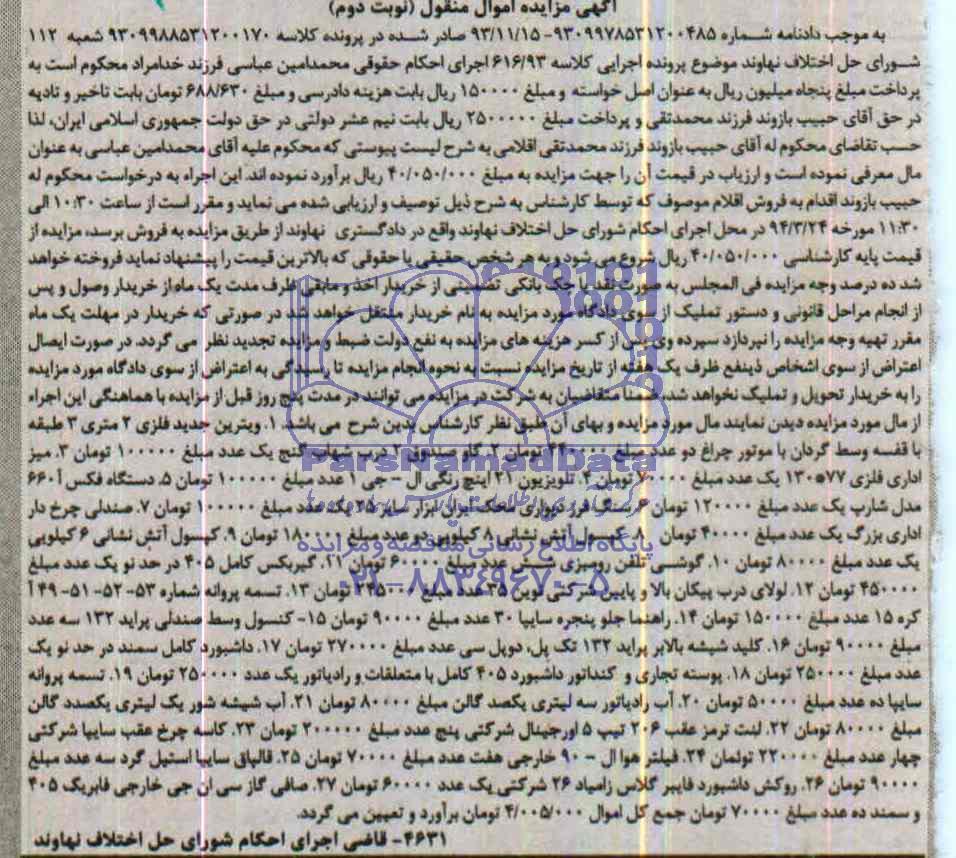 آگهی مزایده اموال منقول (نوبت دوم)
به موجب دادنامه شماره ۹۳۰۹۹۷۸۵۳۱۲۰۰۴۸۵-۹۳/۱۱/۱۵ صادر شده در پرونده کلاسه ۹۳۰۹۹۸۸۵۳۱۲۰۰۱۷۰ شعبه ۱۱۲
شورای حل اختلاف نهاوند موضوع پرونده اجرایی کلاسه ۶۱۶/۹۳ اجرای احکام حقوقی محمدامین عباسی فرزند خدامراد محکوم است به
پرداخت مبلغ پنجاه میلیون ریال به عنوان اصل خواسته و مبلغ ۱۵۰۰۰۰ ریال بابت هزینه دادرسی و مبلغ ۶۸۸/۶۳۰ تومان بابت تاخیر و تادیه
در حق آقای حبیب بازوند فرزند محمدتقی و پرداخت مبلغ ۲۵۰۰۰۰۰ ریال بابت نیم عشر دولتی در حق دولت جمهوری اسلامی ایران، لذا
حسب تقاضای محکوم له آقای حبیب بازوند فرزند محمدتقی اقلامی به شرح لیست پیوستی که محکوم علیه آقای محمدامین عباسی به عنوان
مال معرفی نموده است و ارزیاب در قیمت آن را جهت مزایده به مبلغ ۴۰/۰۵۰/۰۰۰ ریال برآورد نموده اند. این اجراء به درخواست محکوم له
حبیب بازوند اقدام به فروش اقلام موصوف که توسط کارشناس به شرح ذیل توصیف و ارزیابی شده می نماید و مقرر است از ساعت ۱۰:۳۰ الی
۱۱:۳۰ مورخه ۹۴/۳/۲۴ در محل اجرای احکام شورای حل اختلاف نهاوند واقع در دادگستری نهاوند از طریق مزایده به فروش برسد، مزایده از
قیمت پایه کارشناسی ۴۰/۰۵۰/۰۰۰ ریال شروع می شود و به هر شخص حقیقی یا حقوقی که بالاترین قیمت را پیشنهاد نماید فروخته خواهد
شد ده درصد وجه مزایده فی المجلس به صورت نقد یا چک بانکی تضمینی از خریدار اخذ و مابقی ظرف مدت یک ماه از خریدار وصول و پس
از انجام مراحل قانونی و دستور تملیک از سوی دادگاه مورد مزایده به نام خریدار منتقل خواهد شد در صورتی که خریدار در مهلت یک ماه
مقرر تهیه وجه مزایده را نپردازد سپرده وی پس از کسر هزینه های مزایده به نفع دولت ضبط و مزایده تجدید نظر می گردد، در صورت ایصال
اعتراض از سوی اشخاص ذینفع ظرف یک هفته از تاریخ مزایده نسبت به نحوه انجام مزایده تا رسیدگی به اعتراض از سوی دادگاه مورد مزایده
را به خریدار تحویل و تملیک نخواهد شد، ضمنا متقاضیان به شرکت در مزایده می توانند در مدت پنج روز قبل از مزایده با هماهنگی این اجراء
از مال مورد مزایده دیدن نمایند مال مورد مزایده و بهای آن طبق نظر کارشناس بدین شرح می باشد. ۱. ویترین جدید فلزی ۲ متری ۳ طبقه
با قفسه وسط گردان با موتور چراغ دو عدد مبلغ تومان ۲. گاو صندوق ۲ درب شهاب گنج یک عدد مبلغ ۱۰۰۰۰۰ تومان ۳. میز
اداری فلزی ۷۷*۱۳۰ یک عدد مبلغ تومان ۴. تلویزیون ۲۱ اینچ رنگی ال - جی ۱ عدد مبلغ ۱۰۰۰۰۰ تومان ۵. دستگاه فکس آ ۶۶۰
مدل شارپ یک عدد مبلغ ۱۲۰۰۰۰ تومان ۶. سنگ فرز دیواری محک ایران ابزار سایز ۲۵ یک عدد مبلغ ۱۰۰۰۰۰ تومان ۷. صندلی چرخ دار
اداری بزرگ یک عدد مبلغ ۴۰۰۰۰ تومان ۸. کپسول آتش نشانی ۸ کیلویی دو عدد مبلغ ۱۸۰۰۰۰ تومان ۹. کپسول آتش نشانی ۶ کیلویی
یک عدد مبلغ ۸۰۰۰۰ تومان ۱۰. گوشی تلفن رومیزی شش عدد مبلغ ۶۰۰۰۰ تومان ۱۱. گیربکس کامل ۴۰۵ در حد نو یک عدد مبلغ
۴۵۰۰۰۰ تومان ۱۲. لولای درب پیکان بالا و پایین شرکتی نوین ۳۵ عدد مبلغ تومان ۱۳. تسمه پروانه شماره ۵۳- ۵۲- ۵۱- ۴۹ آ
کره ۱۵ عدد مبلغ ۱۵۰۰۰۰ تومان ۱۴. راهنما جلو پنجره سایپا ۳۰ عدد مبلغ ۹۰۰۰۰ تومان ۱۵- کنسول وسط صندلی پراید ۱۳۲ سه عدد
مبلغ ۹۰۰۰۰ تومان ۱۶. کلید شیشه بالابر پراید ۱۳۲ تک پل، دوپل سی عدد مبلغ ۲۷۰۰۰۰ تومان ۱۷. داشبورد کامل سمند در حد نو یک
عدد مبلغ ۲۵۰۰۰۰ تومان ۱۸. پوسته تجاری و کنداتور داشبورد ۴۰۵ کامل با متعلقات و رادیاتور یک عدد ۲۵۰۰۰۰ تومان ۱۹. تسمه پروانه
سایپا ده عدد مبلغ ۵۰۰۰۰ تومان ۲۰. آب رادیاتور سه لیتری یکصد گالن مبلغ ۸۰۰۰۰ تومان ۲۱. آب شیشه شور یک لیتری یکصدد گالن
مبلغ ۸۰۰۰۰ تومان ۲۲. لنت ترمز عقب ۲۰۶ تیپ ۵ اورجینال شرکتی پنج عدد مبلغ ۲۰۰۰۰۰ تومان ۲۳. کاسه چرخ عقب سایپا شرکتی
چهار عدد مبلغ ۲۲۰۰۰۰ توئمان ۲۴. فیلتر هوا ال - ۹۰ خارجی هفت عدد مبلغ ۷۰۰۰۰ تومان ۲۵. قالپاق سایپا استیل گرد سه عدد مبلغ
۹۰۰۰۰ تومان ۲۶. روکش داشبورد فایبر گلاس زامیاد ۲۶ شرکتی یک عدد ۶۰۰۰۰ تومان ۲۷. صافی گاز سی ان جی خارجی فابریک ۴۰۵
و سمند ده عدد مبلغ ۷۰۰۰۰ تومان جمع کل اموال ۴/۰۰۵/۰۰۰ تومان برآورد و تعیین می گردد.
۴۶۳۱- قاضی اجرای احکام شورای حل اختلاف نهاوند
ParsNamadData
پایگاه اطلاع رسانی مناقصه و مزایده
۰۲۱-۸۸۳۴۹۶۷۰-۵